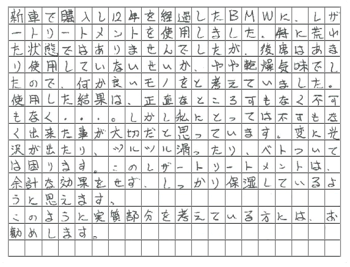 新車で購入し12年を経過したBMWに、レザ
ートリートメントを使用しました。特に荒れ
た状態ではありませんでしたが、後席はあま
り使用していないせいか、やや乾燥気味でし
たので、何か良いモノをと考えていました。
使用した結果は、正直なところ可もなく不可
もなく・・・。しかし私にとっては不可もな
く出来た事が大切だと思っています。変に光
沢が出たり、ツルツル滑ったり、ベトついて
は困ります。このレザートリートメントは、
余計な効果をせず、しっかり保湿しているよ
うと思えます。
このように実質部分を考えている方には、お
勧めします。